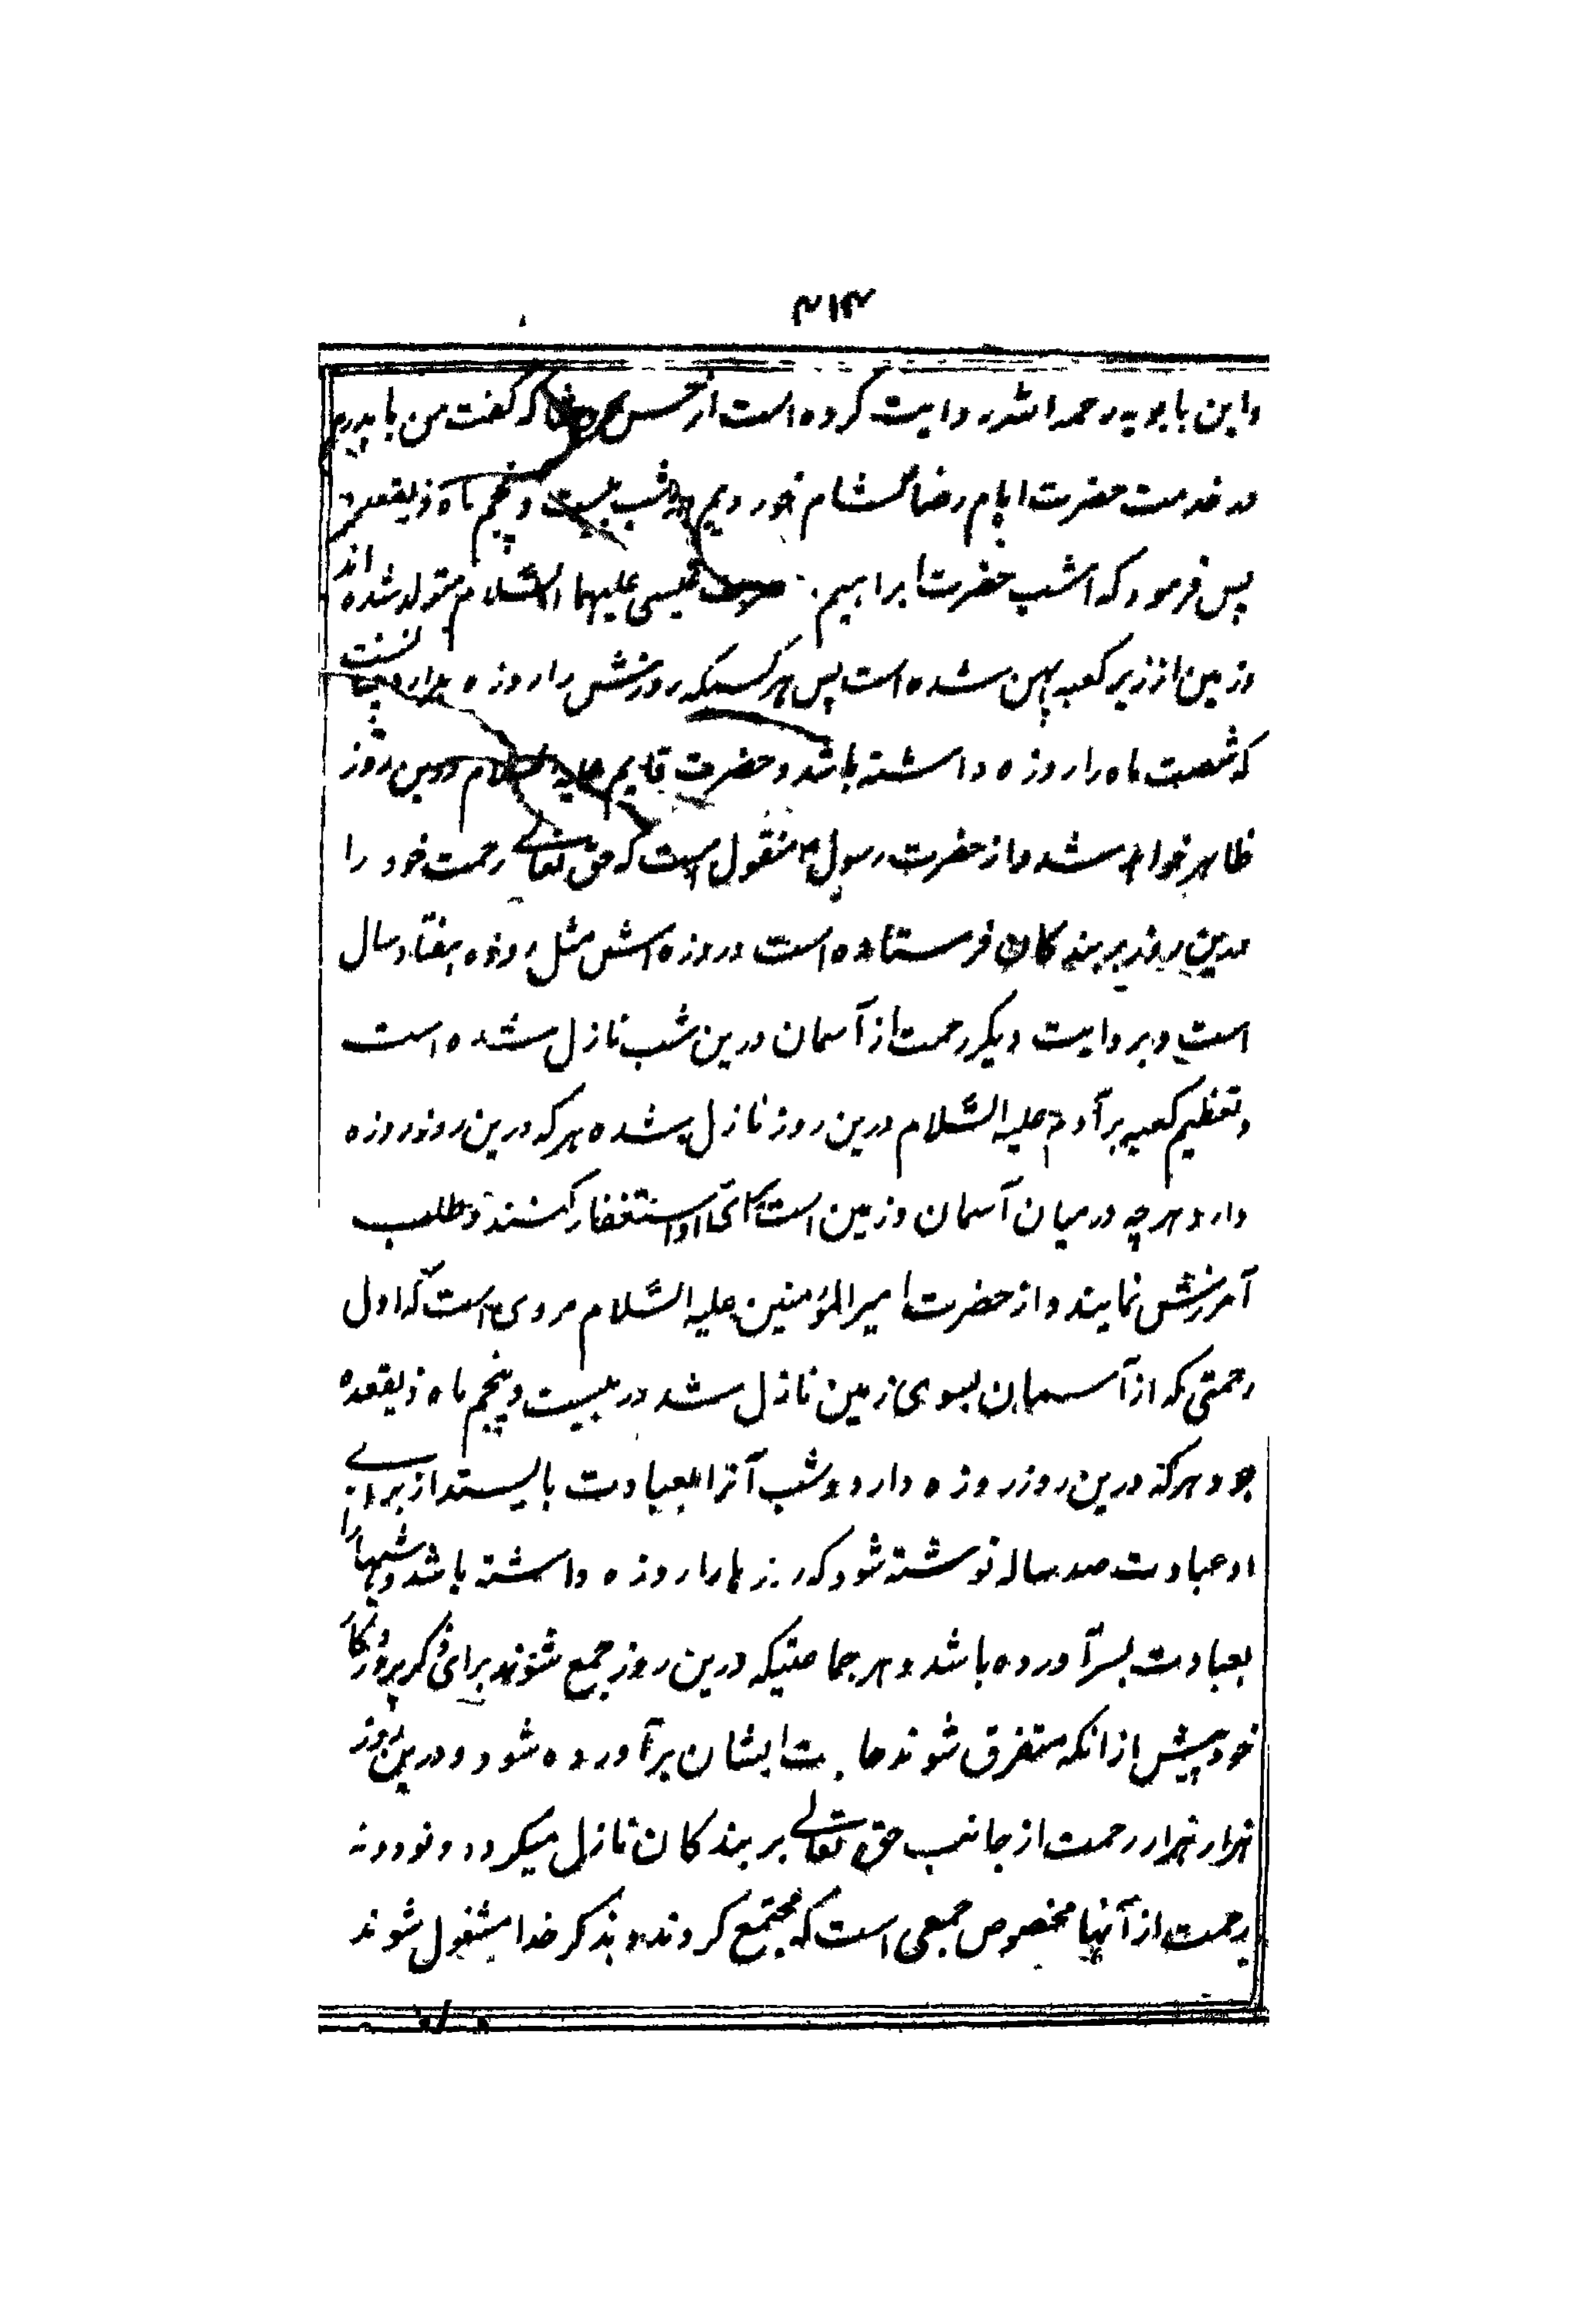 ۳۱۴
وابن بابویه رحمه الله روایت کرده است از حسن که گفت من با پدرم
در خدمت حضرت امام رضا شام خوردیم شب بیست و پنجم ماه ذیقعده
پس فرمود که امشب حضرت ابراهیم عیسی علیهما السّلام متولد شده اند
وزمین از زیر کعبه پهن شده است پس هر کسیکه روزش را روزه
که شصت ماه را روزه داشته باشد وحضرت قایم علیه السلام درین روز
ظاهر خواهد شد و از حضرت رسول منقول است که حق تعالے رحمت خود را
درین روز بر بندکان فرستاده است و روزه اش مثل روزه هفتاد سال
است وبروایت دیکر رحمت از آسمان درین شب نازل شده است
وتعظیم کعبه بر آدم علیه السّلام درین روز نازل شده هر که درین روز روزه
دارد هرچه درمیان آسمان وزمین است برای او استغفار کنند وطلب
آمرزش نمایند و از حضرت امیر المؤمنین علیه السّلام مروی است که اول
رحمتی که از آسمان بسوی زمین نازل شد در بیست و پنجم ماه ذیقعده
بود و هر که درین روز روزه دارد و شب آنرا بعبادت بایستد از برای
او عبادت صد ساله نوشته شود که روزها را روزه داشته باشد وشبها را
بعبادت بسر آورده باشد و هر جماعتیکه درین روز جمع شوند برای ذکر پروردکار
خود پیش از انکه متفرق شوند حاجت ایشان برآورده شود و درین روز
هزار هزار رحمت از جانب حق تعالے بر بندکان نازل میکردد و نود و نه
رحمت از آنها مخصوص جمعی است که مجتمع کردند و بذکر خدا مشغول شوند